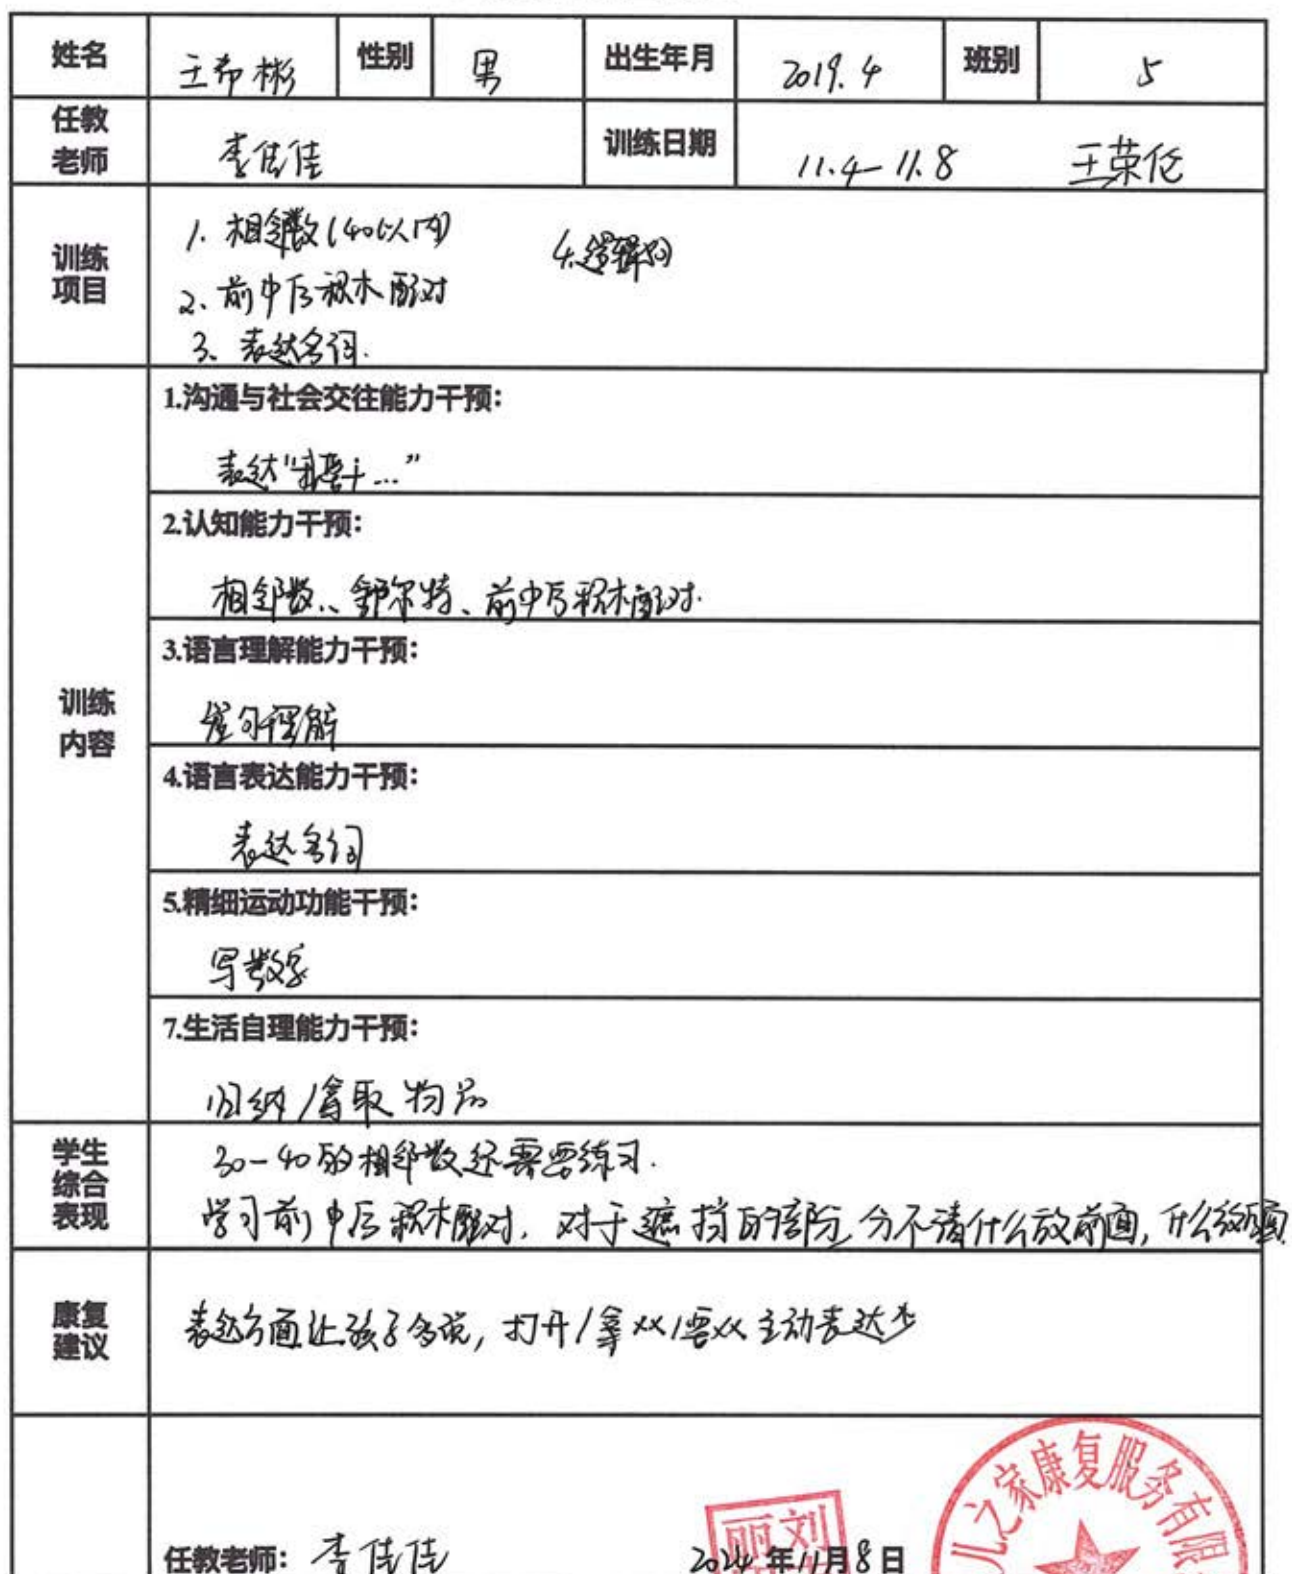 姓名 王希彬 性别 男 出生年月 2019.4 班别 5
任教老师 李佳佳 训练日期 11.4-11.8 王荣伦
训练项目
1. 相邻数(40以内) 4.逻辑狗
2、前中后积木配对
3、表达名词.
训练内容
1.沟通与社会交往能力干预：
表达“我要+...”
2.认知能力干预：
相邻数、舒尔特、前中后积木配对.
3.语言理解能力干预：
句理解
4.语言表达能力干预：
表达名词
5.精细运动功能干预：
写数字
7.生活自理能力干预：
归纳/拿取物品
学生综合表现
30-40的相邻数还需要练习.
学习前中后积木配对，对于遮挡的部分，分不清什么放前面，什么放后面
康复建议
表达方面让孩子多说，打开/拿xx/要xx主动表达少
任教老师：李佳佳 2024年11月8日
丽刘
儿之家康复服务有限